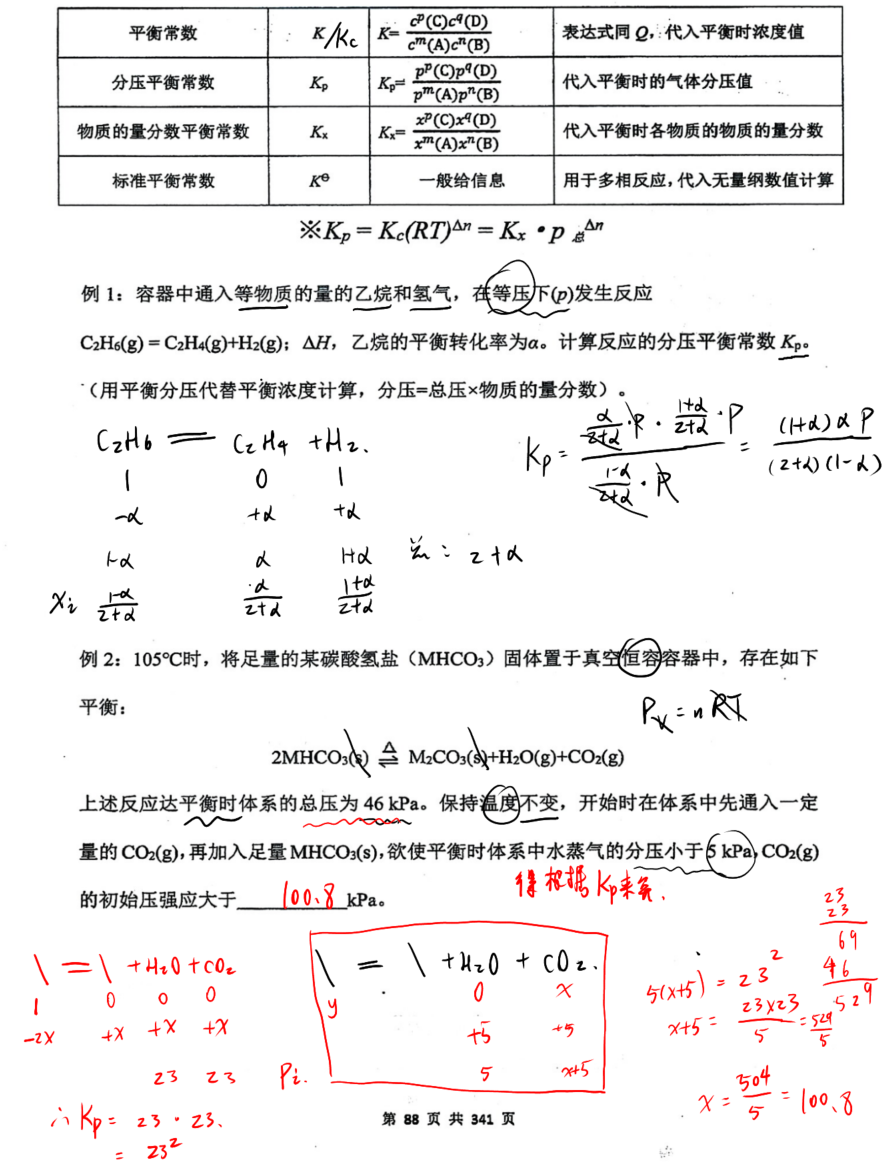 平衡常数 K/Kc K= c^p(C)c^q(D) / c^m(A)c^n(B) 表达式同 Q，代入平衡时浓度值
分压平衡常数 Kp Kp= p^p(C)p^q(D) / p^m(A)p^n(B) 代入平衡时的气体分压值
物质的量分数平衡常数 Kx Kx= x^p(C)x^q(D) / x^m(A)x^n(B) 代入平衡时各物质的物质的量分数
标准平衡常数 K^Θ 一般给信息 用于多相反应，代入无量纲数值计算
※Kp = Kc(RT)^Δn = Kx • p总^Δn
例 1：容器中通入等物质的量的乙烷和氢气，在等压下(p)发生反应
C2H6(g) = C2H4(g)+H2(g)；ΔH，乙烷的平衡转化率为α。计算反应的分压平衡常数 Kp。
（用平衡分压代替平衡浓度计算，分压=总压×物质的量分数）。
C2H6 = C2H4 + H2.
1 0 1
-α +α +α
1-α α 1+α
2+α
Xi (1-α)/(2+α) α/(2+α) (1+α)/(2+α)
Kp = (α/(2+α) · P · (1+α)/(2+α) · P) / ((1-α)/(2+α) · P) = (1+α)αP / (2+α)(1-α)
例 2：105℃时，将足量的某碳酸氢盐（MHCO3）固体置于真空恒容容器中，存在如下
平衡：
PV = nRT
2MHCO3(s) ⇌ M2CO3(s)+H2O(g)+CO2(g)
△
上述反应达平衡时体系的总压为 46 kPa。保持温度不变，开始时在体系中先通入一定
量的 CO2(g)，再加入足量 MHCO3(s)，欲使平衡时体系中水蒸气的分压小于 5 kPa，CO2(g)
的初始压强应大于 100.8 kPa。
得根据 Kp来算.
\ = \ + H2O + CO2
1 0 0 0
-2x +x +x +x
23 23
∴ Kp = 23 · 23.
= 23²
\ = \ + H2O + CO2.
y 0 x
+5 +5
Pi. 5 x+5
5(x+5) = 23²
x+5 = 23×23/5 = 529/5
x = 504/5 = 100.8
23
23
69
46
529
第 88 页 共 341 页